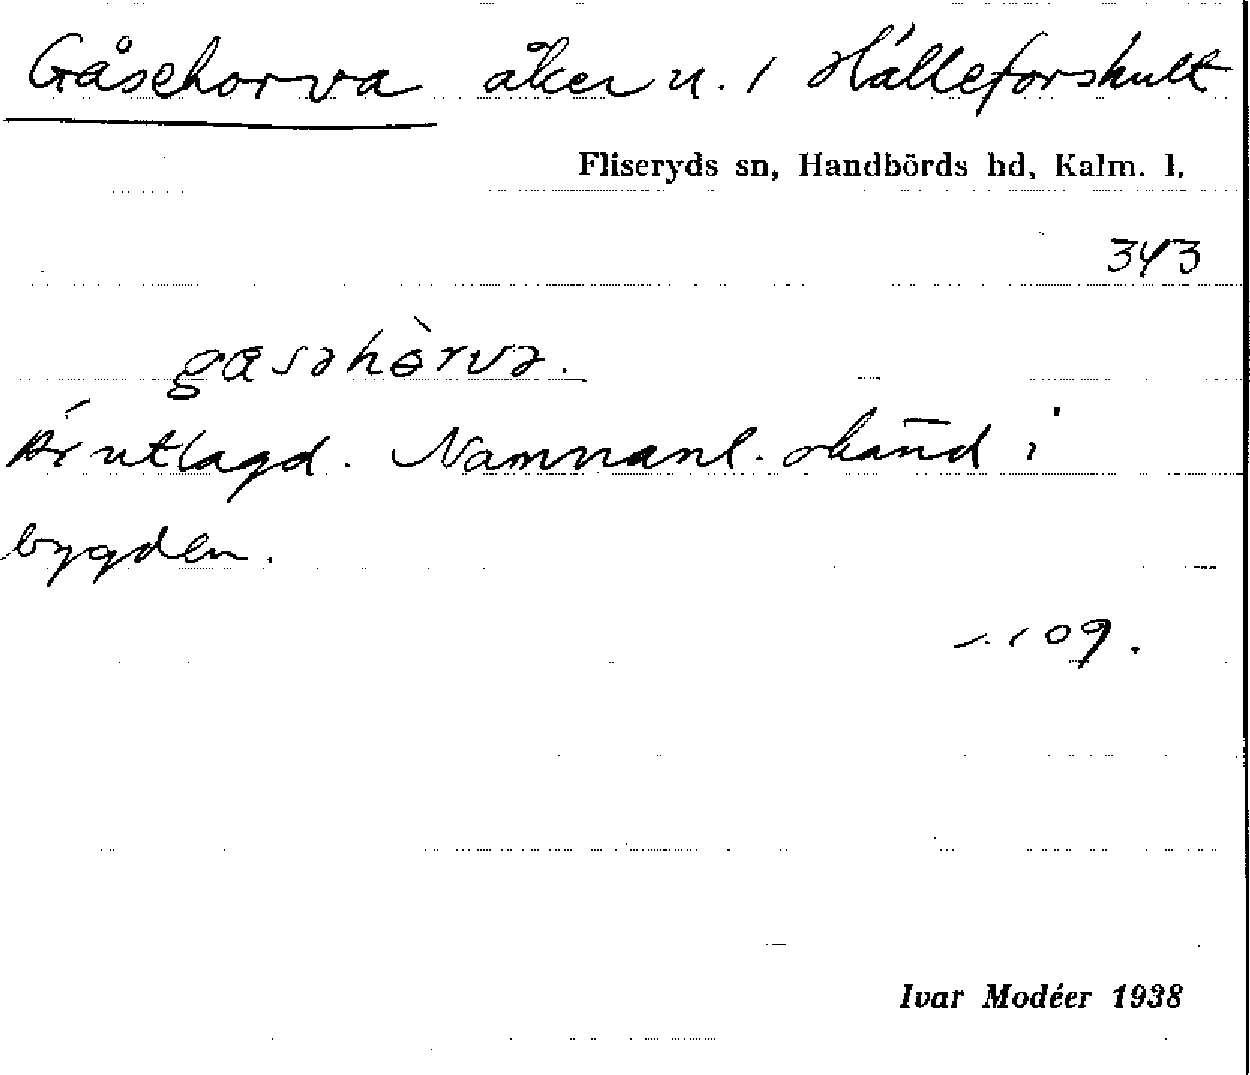 Gåsehorva åker u. 1 Hälleforshult
Fliseryds sn, Handbörds hd, Kalm. l.
343
gɑsəhèrvə.
Är utlagd. Namnanl. okänd i
bygden.
109.
Ivar Modéer 1938